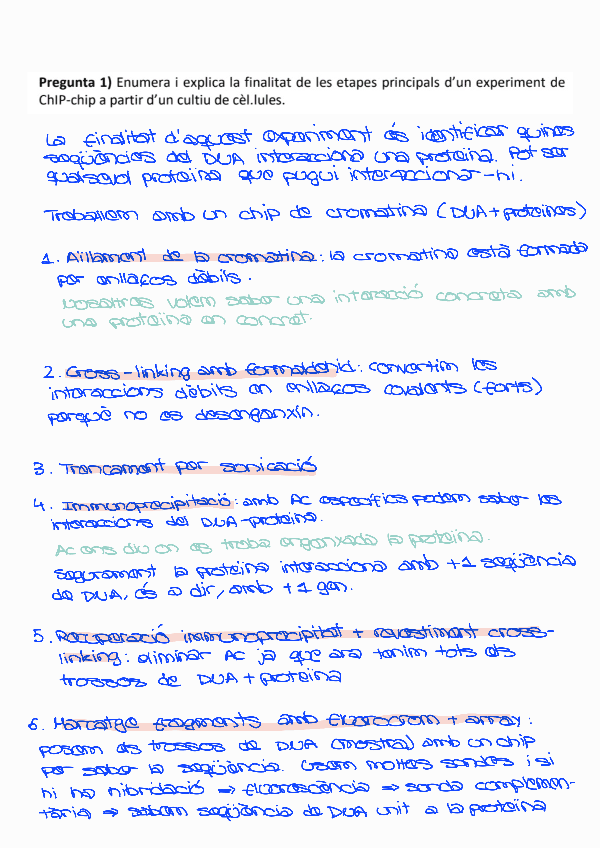 Pregunta 1) Enumera i explica la finalitat de les etapes principals d'un experiment de
ChIP-chip a partir d'un cultiu de cèl.lules.
La finalitat d'aquest experiment és identificar quines
seqüències del DUA interacciona una proteïna. Pot ser
qualsevol proteïna que pugui interaccionar-hi.
Treballem amb un chip de cromatina (DUA+proteïnes)
1. Aïllament de la cromatina: la cromatina està formada
per enllaços dèbils.
Nosaltres volem saber una interacció concreta amb
una proteïna en concret.
2. Cross-linking amb formaldehid: convertim les
interaccions dèbils en enllaços covalents (forts)
perquè no es desenganxin.
3. Trencament per sonicació
4. Immunoprecipitació: amb Ac específics podem saber les
interaccions del DUA-proteïna.
Ac ens diu on es troba enganxada la proteïna.
Segurament la proteïna interacciona amb +1 seqüència
de DUA, és a dir, amb +1 gen.
5. Recuperació immunoprecipitat + revestiment cross-
linking: eliminar Ac ja que ara tenim tots els
trossos de DUA+proteïna
6. Marcatge fragments amb fluorocrom + array:
posem els trossos de DUA (mostra) amb un chip
per saber la seqüència. Usem moltes sondes i si
hi ha hibridació ⇒ fluorescència ⇒ sonda complemen-
tària ⇒ sabem seqüència de DUA unit a la proteïna